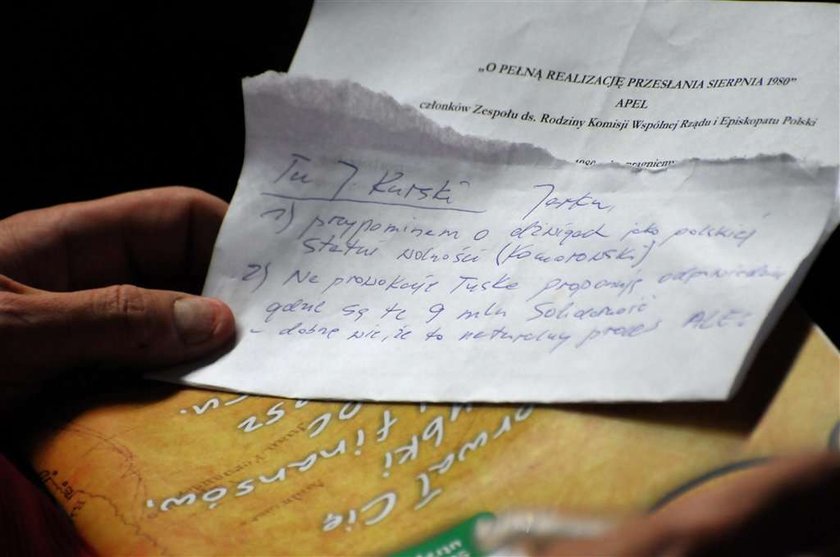 „O PEŁNĄ REALIZACJĘ PRZESŁANIA SIERPNIA 1980”
APEL
członków Zespołu ds. Rodziny Komisji Wspólnej Rządu i Episkopatu Polski
Tu J. Kurski Jarku,
1) przypominem o dźwigach jako polskiej
Statui wolności (Komorowski)
2) Na prowokacje Tuska proponuję
gdzie są te 9 mln Solidarność
- dobrze wie, że to naturalny proces ALE:
orwał Cię
finansów.